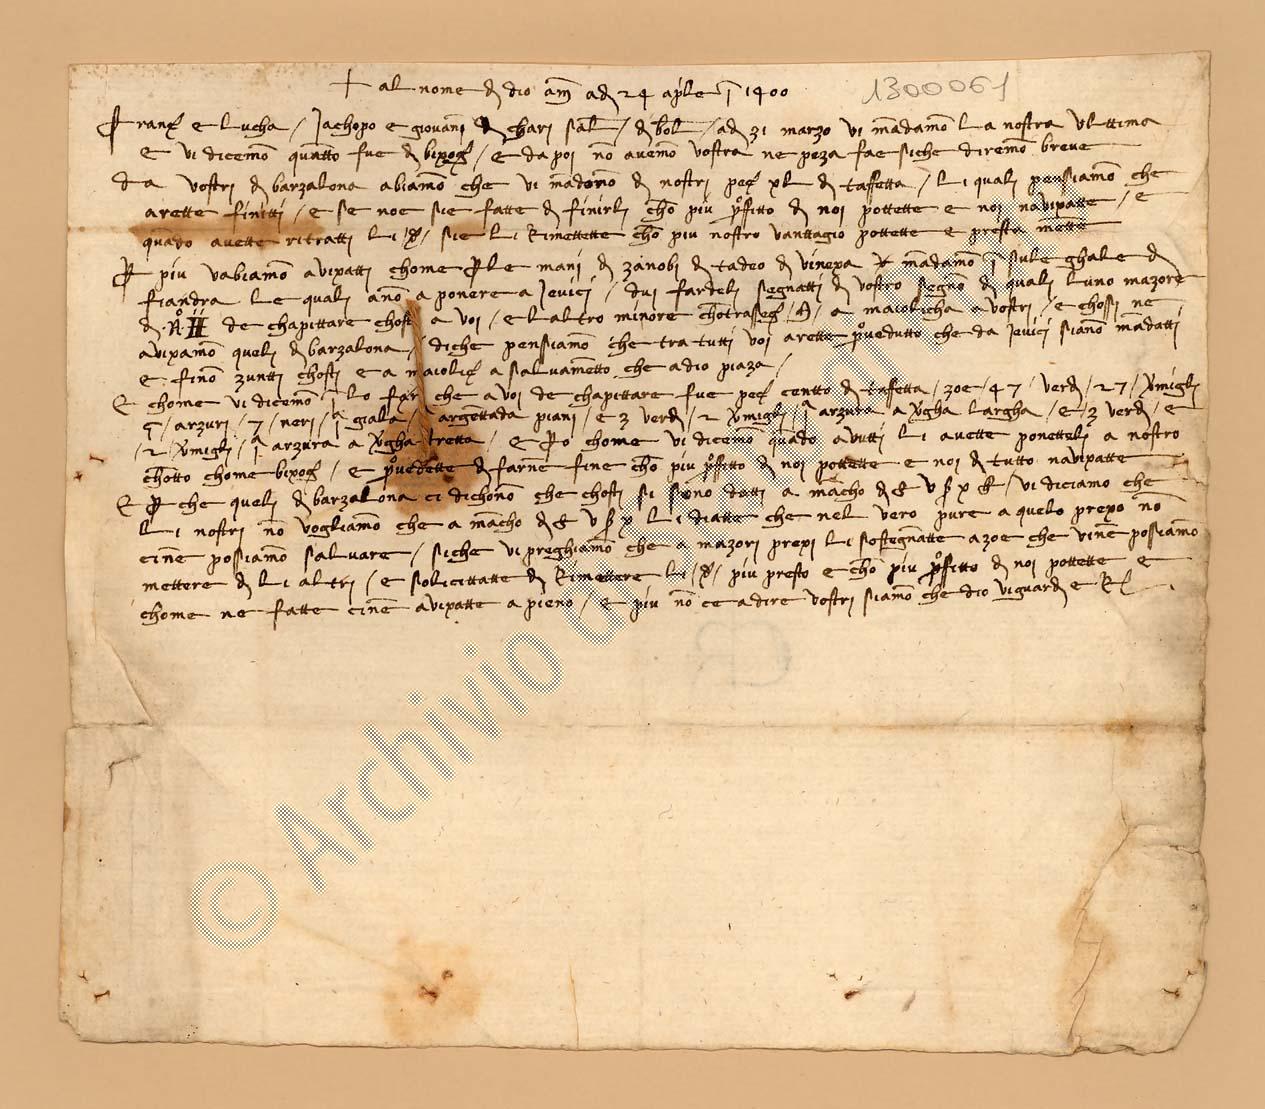 + al nome d dio am ad 24 aprle 1400
1300061
Franc e Lucha / Jachopo e giovanni d chari sal / d bol / ad 31 marzo vi madamo la nostra ulttima
e vi dicemo quatto fue d bixog / e da poi no avemo vostra ne peza fae siche diremo breve
da vostri d barzalona abiamo che vi madono d nostri pec xl d taffetta / li quali pensiamo che
arette finitti / e se noe sie fatte d finirli cho piu profitto d noi pottette e noi navixatte / e
quado avette ritratti li / sie li rimettette cho piu nostro vanttagio pottette e presta mette
Per piu vabiamo avixatti chome per le mani d zanobi d tadeo d vinexa madamo sule ghale d
fiandra le quali ano a ponere a Jevici / dui fardeli segnatti d vostro segno d quali luno mazore
d no II de chapittare chosti a voi / e laltro minore chotrasseg / / a maiolicha a vostri / e chossi ne
avixamo queli d barzalona / diche pensiamo che tra tutti voi arette provedutto che da Jevici siano madatti
e fino zuntti chosti e a maiolic a salvametto che a dio piaza /
E chome vi dicemo lo far che a voi de chapittare fue pec centto d taffetta / zoe 47 verd / 27 / vmigli
5 / arzuri / 7 / neri / 1 giala / argettada piani / e 3 verd / 2 vmigli / 1 arzura a vgha largha / e 3 verd / e
/ 2 / vmigli / 1 arzura a vgha stretta / e pero chome vi dicemo quado avutti li avette ponetteli a nostro
chotto chome bixog / e provedette d farne fine cho piu profitto d noi pottette e noi d tutto navixatte
E per che queli d barzalona ci dichono che chosti si sono datti a macho d vi diciamo che
li nostri no vogliamo che a macho d li diatte che nel vero pure a quelo prexo no
cine possiamo salvare / siche vi preghiamo che a mazori prexi li sostegnatte azoe che vine possiamo
mettere d li altri / e solicittatte d rimettere li / / piu presto e cho piu profitto d noi pottette e
chome ne fatte cine avixatte a pieno / e piu no ce a dire vostri siamo che dio vi guard e
© Archivio